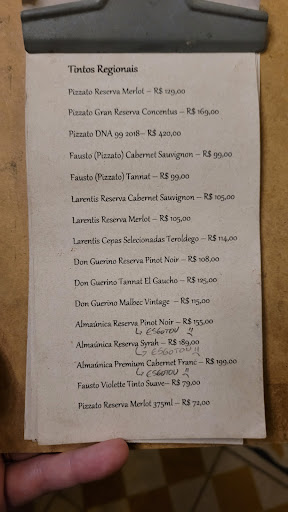 Tintos Regionais
Pizzato Reserva Merlot – R$ 129,00
Pizzato Gran Reserva Concentus – R$ 169,00
Pizzato DNA 99 2018– R$ 420,00
Fausto (Pizzato) Cabernet Sauvignon – R$ 99,00
Fausto (Pizzato) Tannat – R$ 99,00
Larentis Reserva Cabernet Sauvignon – R$ 105,00
Larentis Reserva Merlot – R$ 105,00
Larentis Cepas Selecionadas Teroldego – R$ 114,00
Don Guerino Reserva Pinot Noir – R$ 108,00
Don Guerino Tannat El Gaucho – R$ 125,00
Don Guerino Malbec Vintage – R$ 115,00
Almaúnica Reserva Pinot Noir – R$ 155,00
↳ ESGOTOU
Almaúnica Reserva Syrah – R$ 189,00
↳ ESGOTOU
Almaúnica Premium Cabernet Franc – R$ 199,00
↳ ESGOTOU
Fausto Violette Tinto Suave– R$ 79,00
Pizzato Reserva Merlot 375ml – R$ 72,00